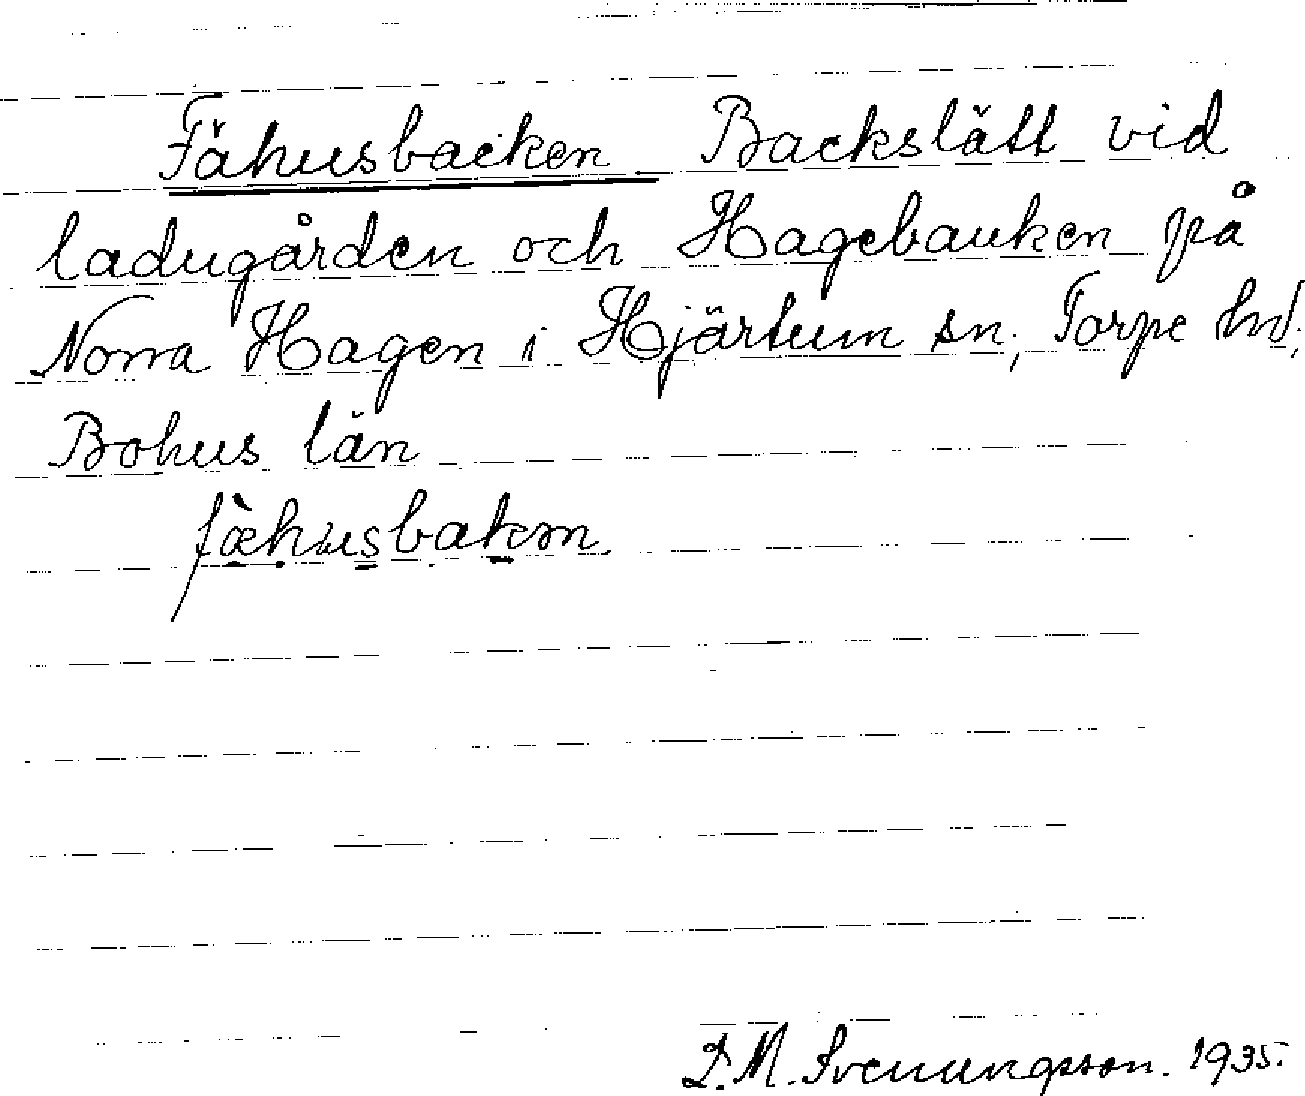 Fähusbacken Backslätt vid
ladugården och Hagebacken på
Norra Hagen i Hjärtum sn, Torpe hd,
Bohus län
fæ̀husbakən
D. M. Svenungsson. 1935.